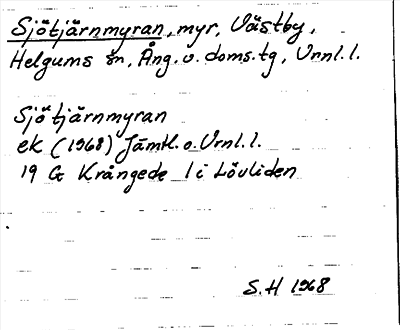 Sjötjärnmyran, myr, Västby,
Helgums sn, Ång. v. doms.tg, Vrnl. l.
Sjötjärnmyran
ek (1968) Jämtl. o. Vrnl. l.
19 G Krångede 1 i Lövliden
S.H 1968